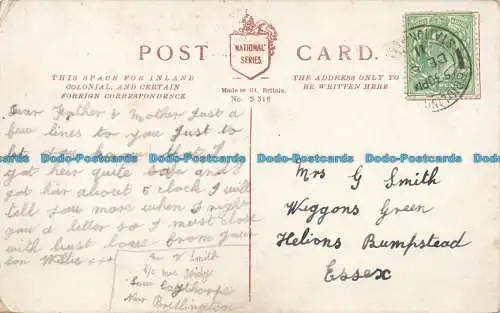 POST CARD.
"NATIONAL" SERIES.
THIS SPACE FOR INLAND
COLONIAL, AND CERTAIN
FOREIGN CORRESPONDENCE.
Made in Gt. Britain.
No. S 316
THE ADDRESS ONLY TO
BE WRITTEN HERE
Dear Father & Mother Just a
few lines to you Just to
let you know that I
got hear quite safe and I
got hear about 5 clock I will
tell you more when I right
you a letter so I must close
with best love from your
son Willie xxx
W Smith
c/o Mrs
Caythorpe
Near Bridlington
Mrs G Smith
Wiggons Green
Helions Bumpstead
Essex
Dodo-Postcards Dodo-Postcards Dodo-Postcards Dodo-Postcards